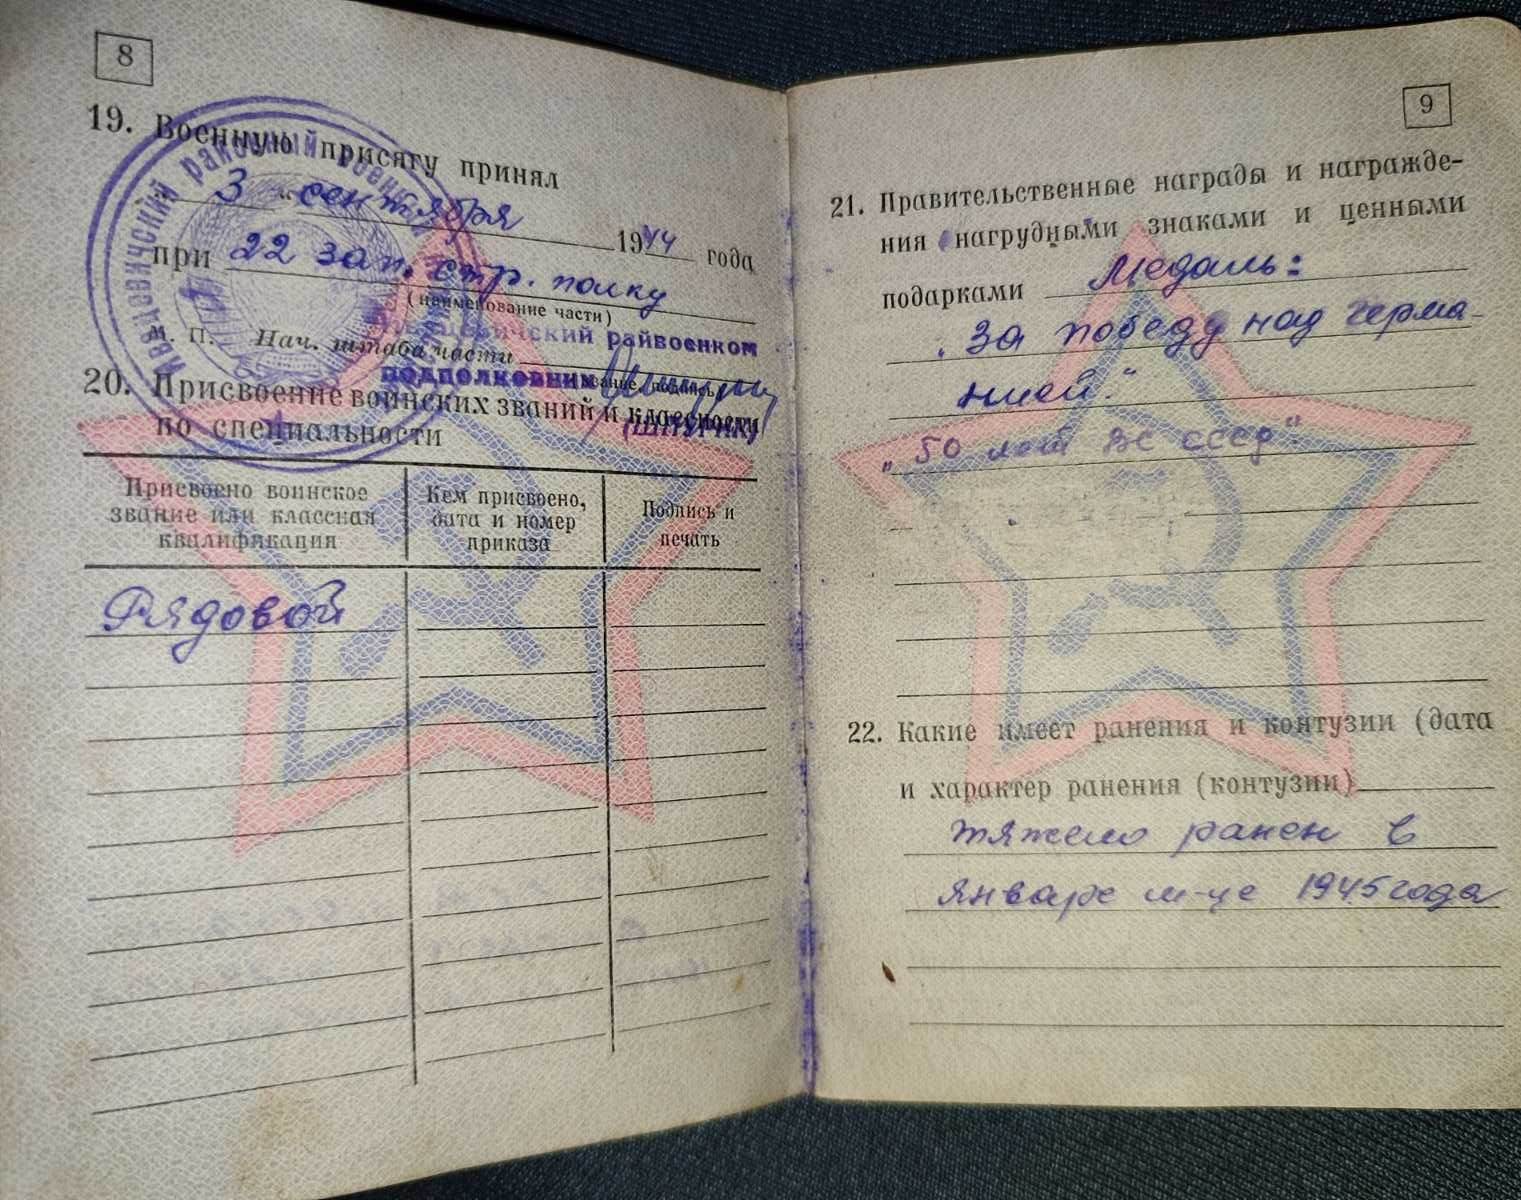 8
19. Военную присягу принял
3 сентября 1944 года
при 22 зап. стр. полку
(наименование части)
Ивацевичский райвоенком
М. П. Нач. штаба части
подполковник
(ШПУРИК)
20. Присвоение воинских званий и классности
по специальности
Присвоено воинское звание или классная квалификация
Кем присвоено, дата и номер приказа
Подпись и печать
Рядовой
9
21. Правительственные награды и награжде-
ния нагрудными знаками и ценными
подарками Медаль:
„За победу над герма-
нией."
„50 лет ВС СССР".
22. Какие имеет ранения и контузии (дата
и характер ранения (контузии)
тяжело ранен в
январе м-це 1945 года